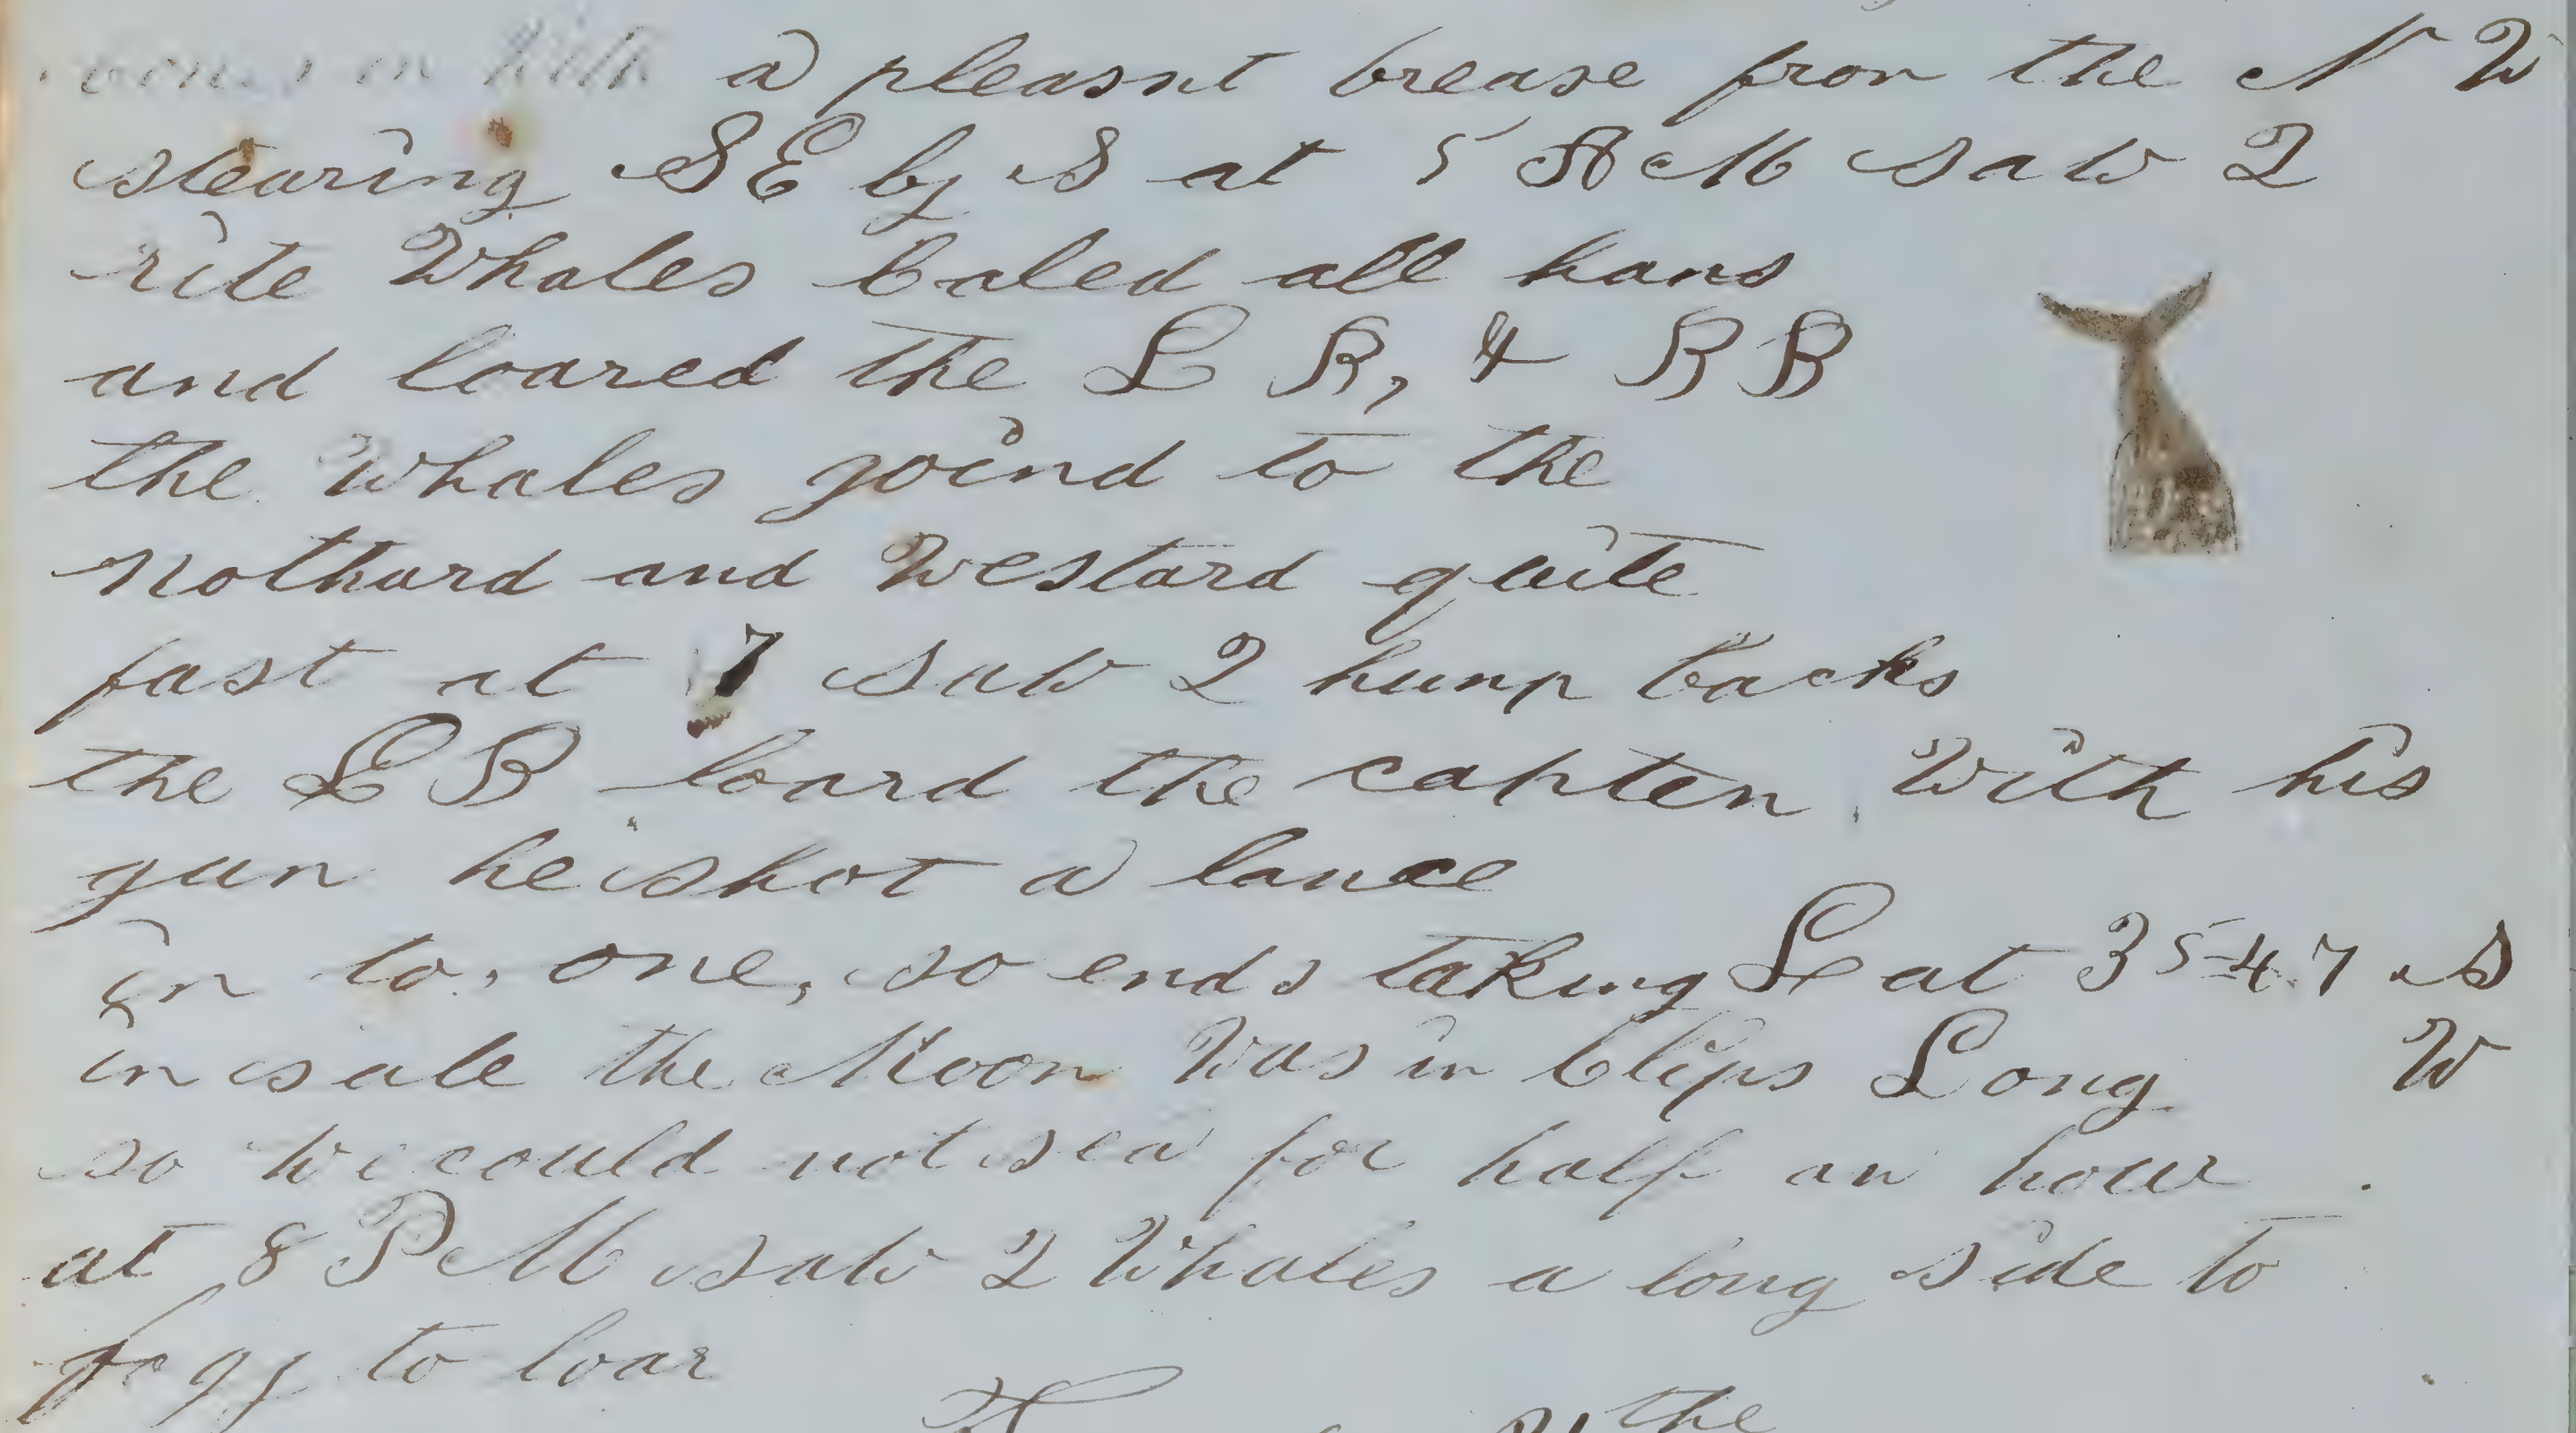 comes in with a pleasnt brease fron the N W
stearing SE by S at 5 A M saw 2
rite Whales Caled all hans
and loared the L B, & B B
the Whales goind to the
Nothard and Westard quite
fast at 7 saw 2 hump backs
the L B loard the capten With his
gun he shot a lance
in to, one, so ends taking Lat 35-47 S
in sale the Moon Was in Clips Long W
so We could not sea for half an hour
at 8 P M saw 2 Whales a long side to
fogy to loar
the